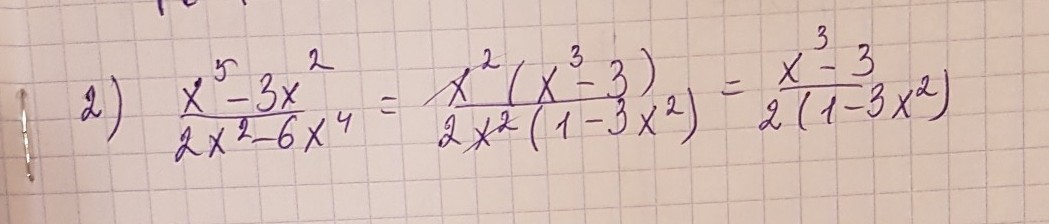 2) (x⁵ - 3x²)/(2x² - 6x⁴) = (x²(x³ - 3))/(2x²(1 - 3x²)) = (x³ - 3)/(2(1 - 3x²))